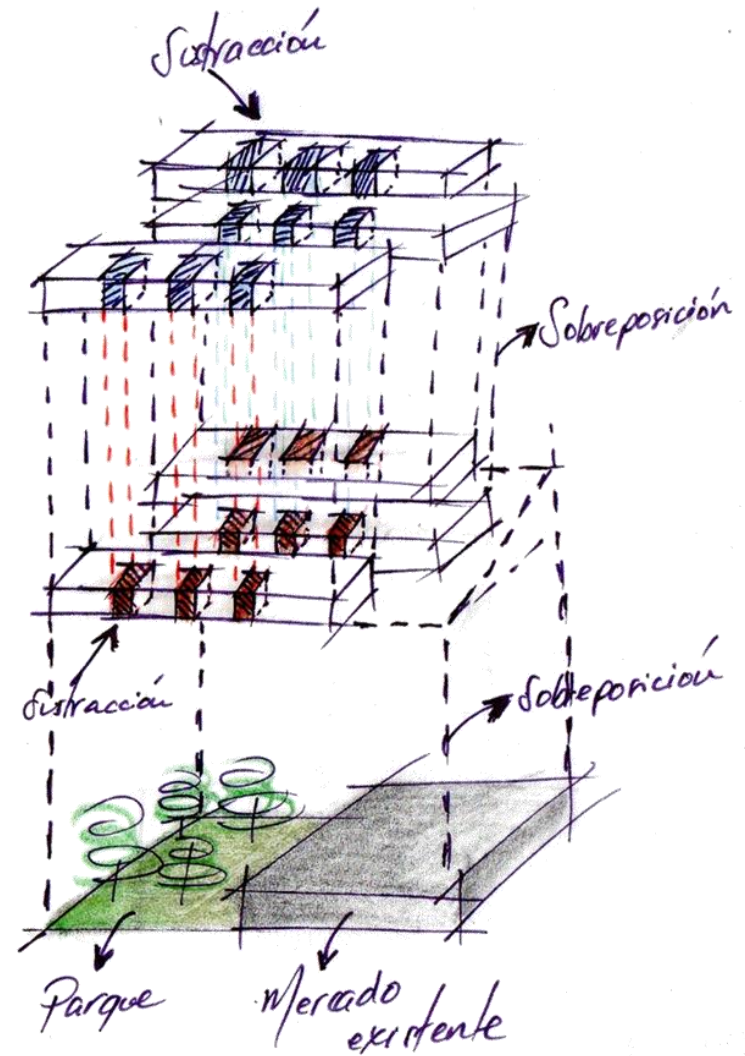 Sustracción
Sobreposición
Sustracción
Sobreposición
Parque
Mercado
existente